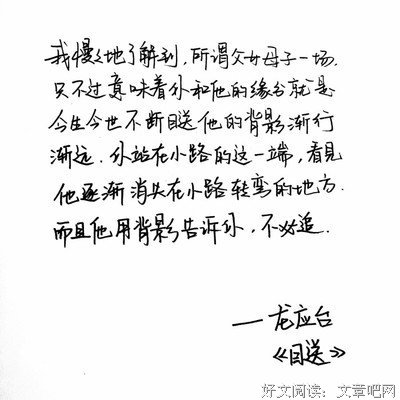 我慢慢地了解到，所谓父女母子一场，
只不过意味着你和他的缘分就是
今生今世不断目送他的背影渐行
渐远．你站在小路的这一端，看见
他逐渐消失在小路转弯的地方．
而且他用背影告诉你，不必追．
——龙应台
《目送》
好文阅读：文章吧网